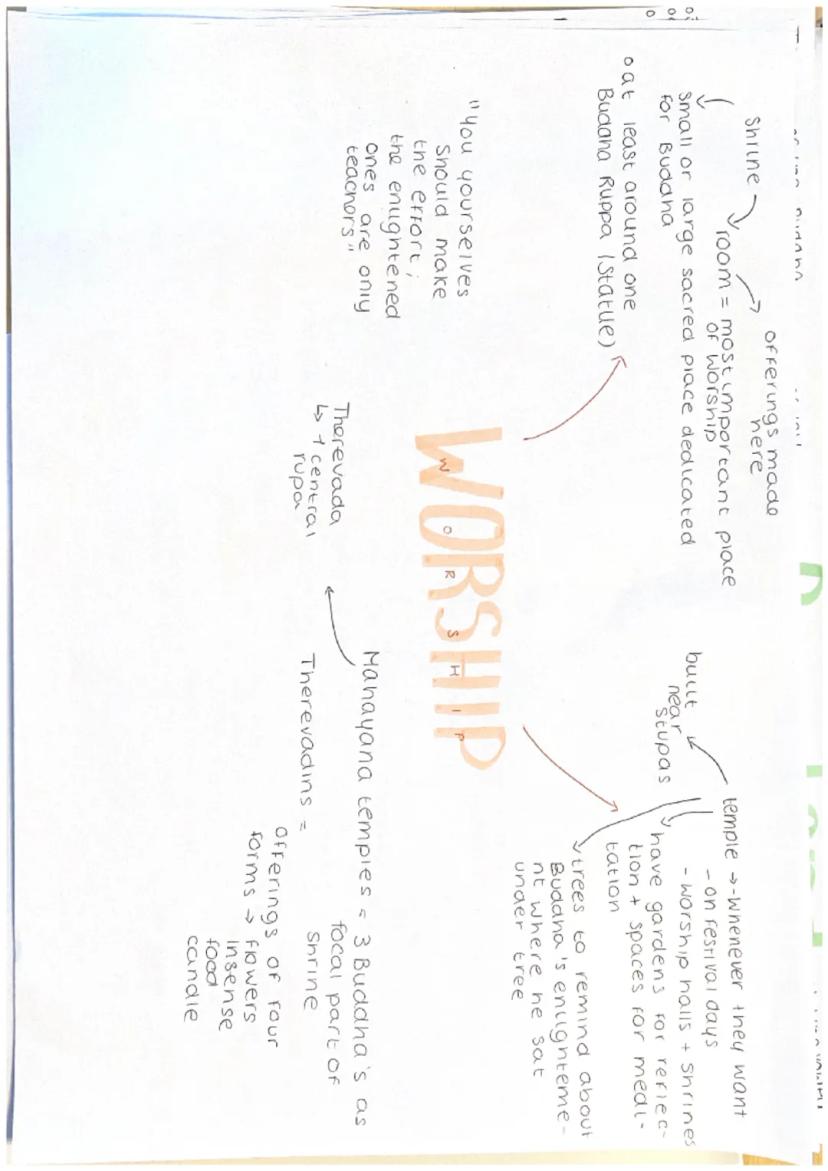 Shrine
room = most important place
of worship
offerings made
here
small or large sacred place dedicated
for Buddha
o at least around one
Buddha Ruppa (Statue)
"You yourselves
should make
the effort;
the enlightened
ones are only
teachers"
WORSHIP
WORSHIP
temple → - whenever they want
- on festival days
- worship halls + shrines
built
near
Stupas
have gardens for reflec-
tion + spaces for medi-
tation
trees to remind about
Buddha's enlighteme-
nt where he sat
under tree
Mahayana temples = 3 Buddha's as
focal part of
shrine
Therevada
↳ 1 central
rupa
Therevadins =
offerings of four
forms → flowers
insense
food
candle